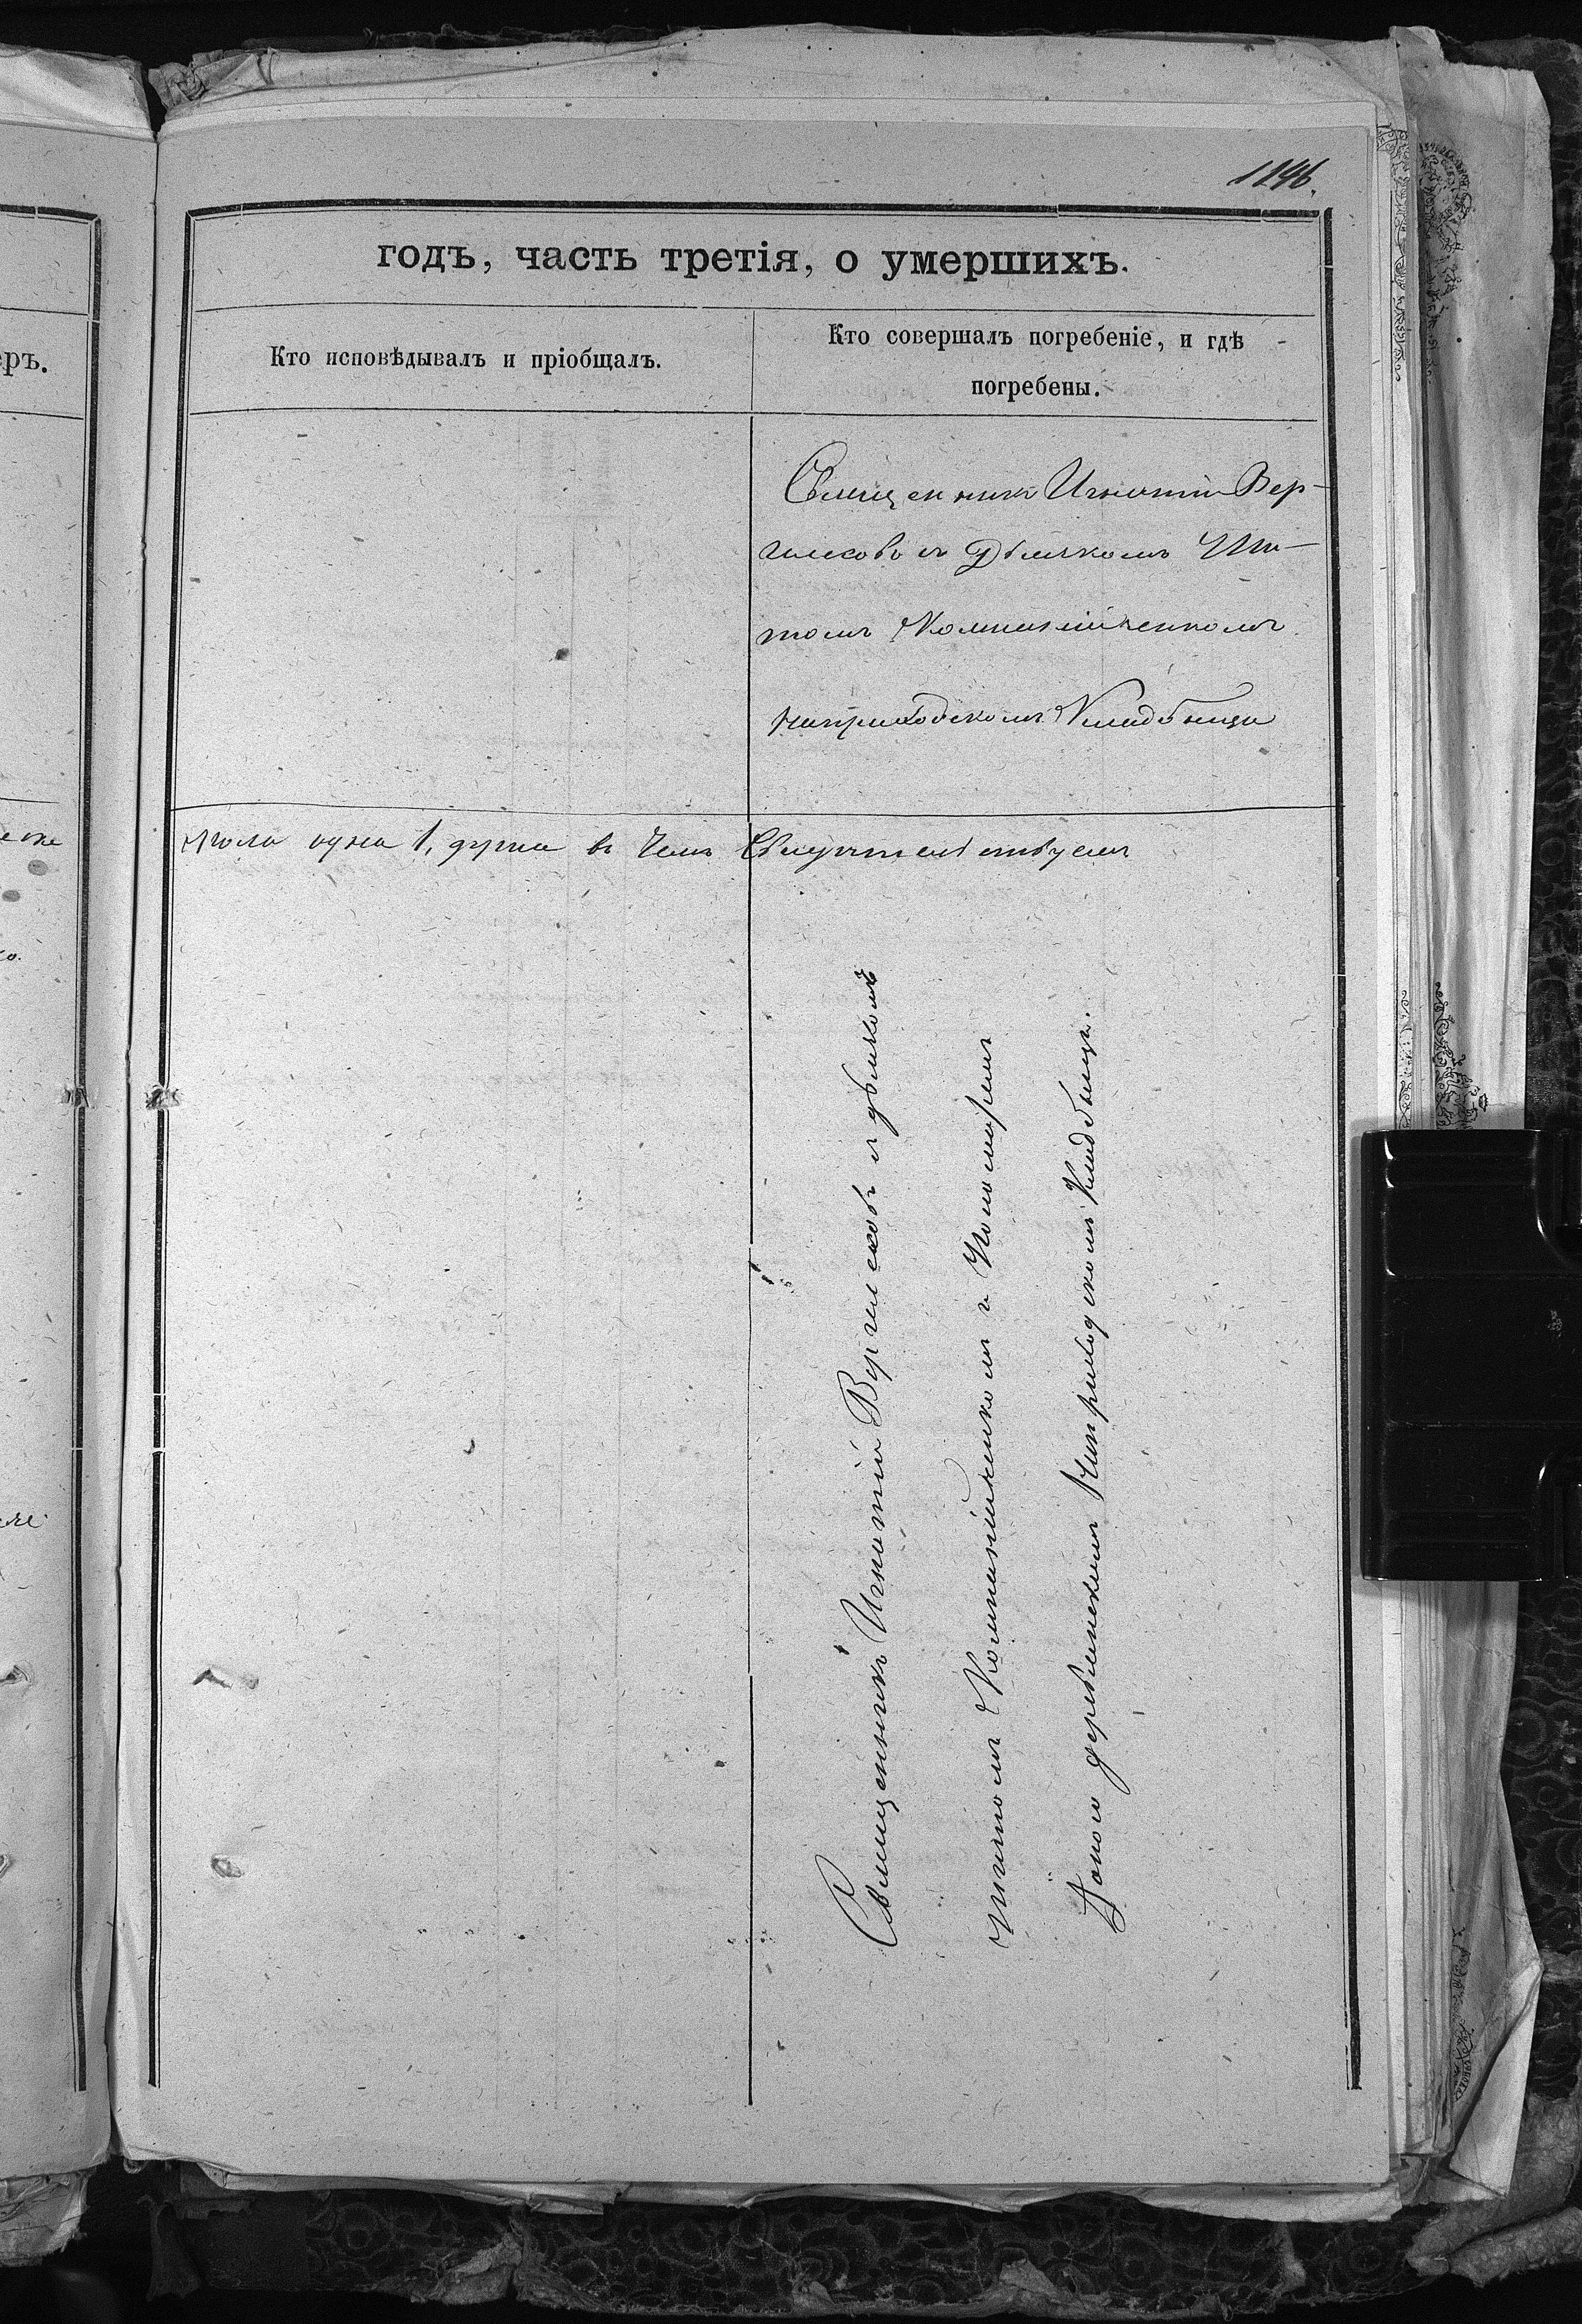 1246.
годъ, часть третія, о умершихъ.
Кто исповѣдывалъ и пріобщалъ.
Кто совершалъ погребеніе, и гдѣ
погребены.
еръ.
Священникъ Игнатій Вер-
гилесовъ съ Дьячкомъ
томъ Компанійченкомъ
на приходскомъ Кладбищѣ
пола одна 1, душа въ чемъ Свидѣтельствуемъ
Священникъ Игнатій Вергилесовъ съ дьячкомъ
Титомъ Компанійченкомъ и Пономаремъ
на приходскомъ Кладбищѣ.